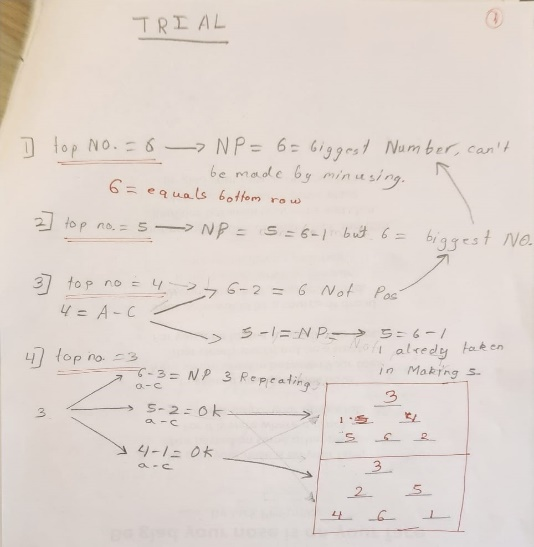 TRIAL
1
1] top NO. = 6 → NP = 6 = Biggest Number, can't
be made by minusing.
6 = equals bottom row
2] top no. = 5 → NP = 5 = 6-1 but 6 = biggest NO.
3] top no = 4 → 6-2 = 6 Not Pos
4 = A-C
5-1 = NP → 5 = 6-1
1 alredy taken
in Making 5.
4] top no. = 3
6-3 = NP 3 Repeating
a-c
3 5-2 = OK
a-c
4-1 = OK
a-c
3
1 4
5 6 2
3
2 5
4 6 1